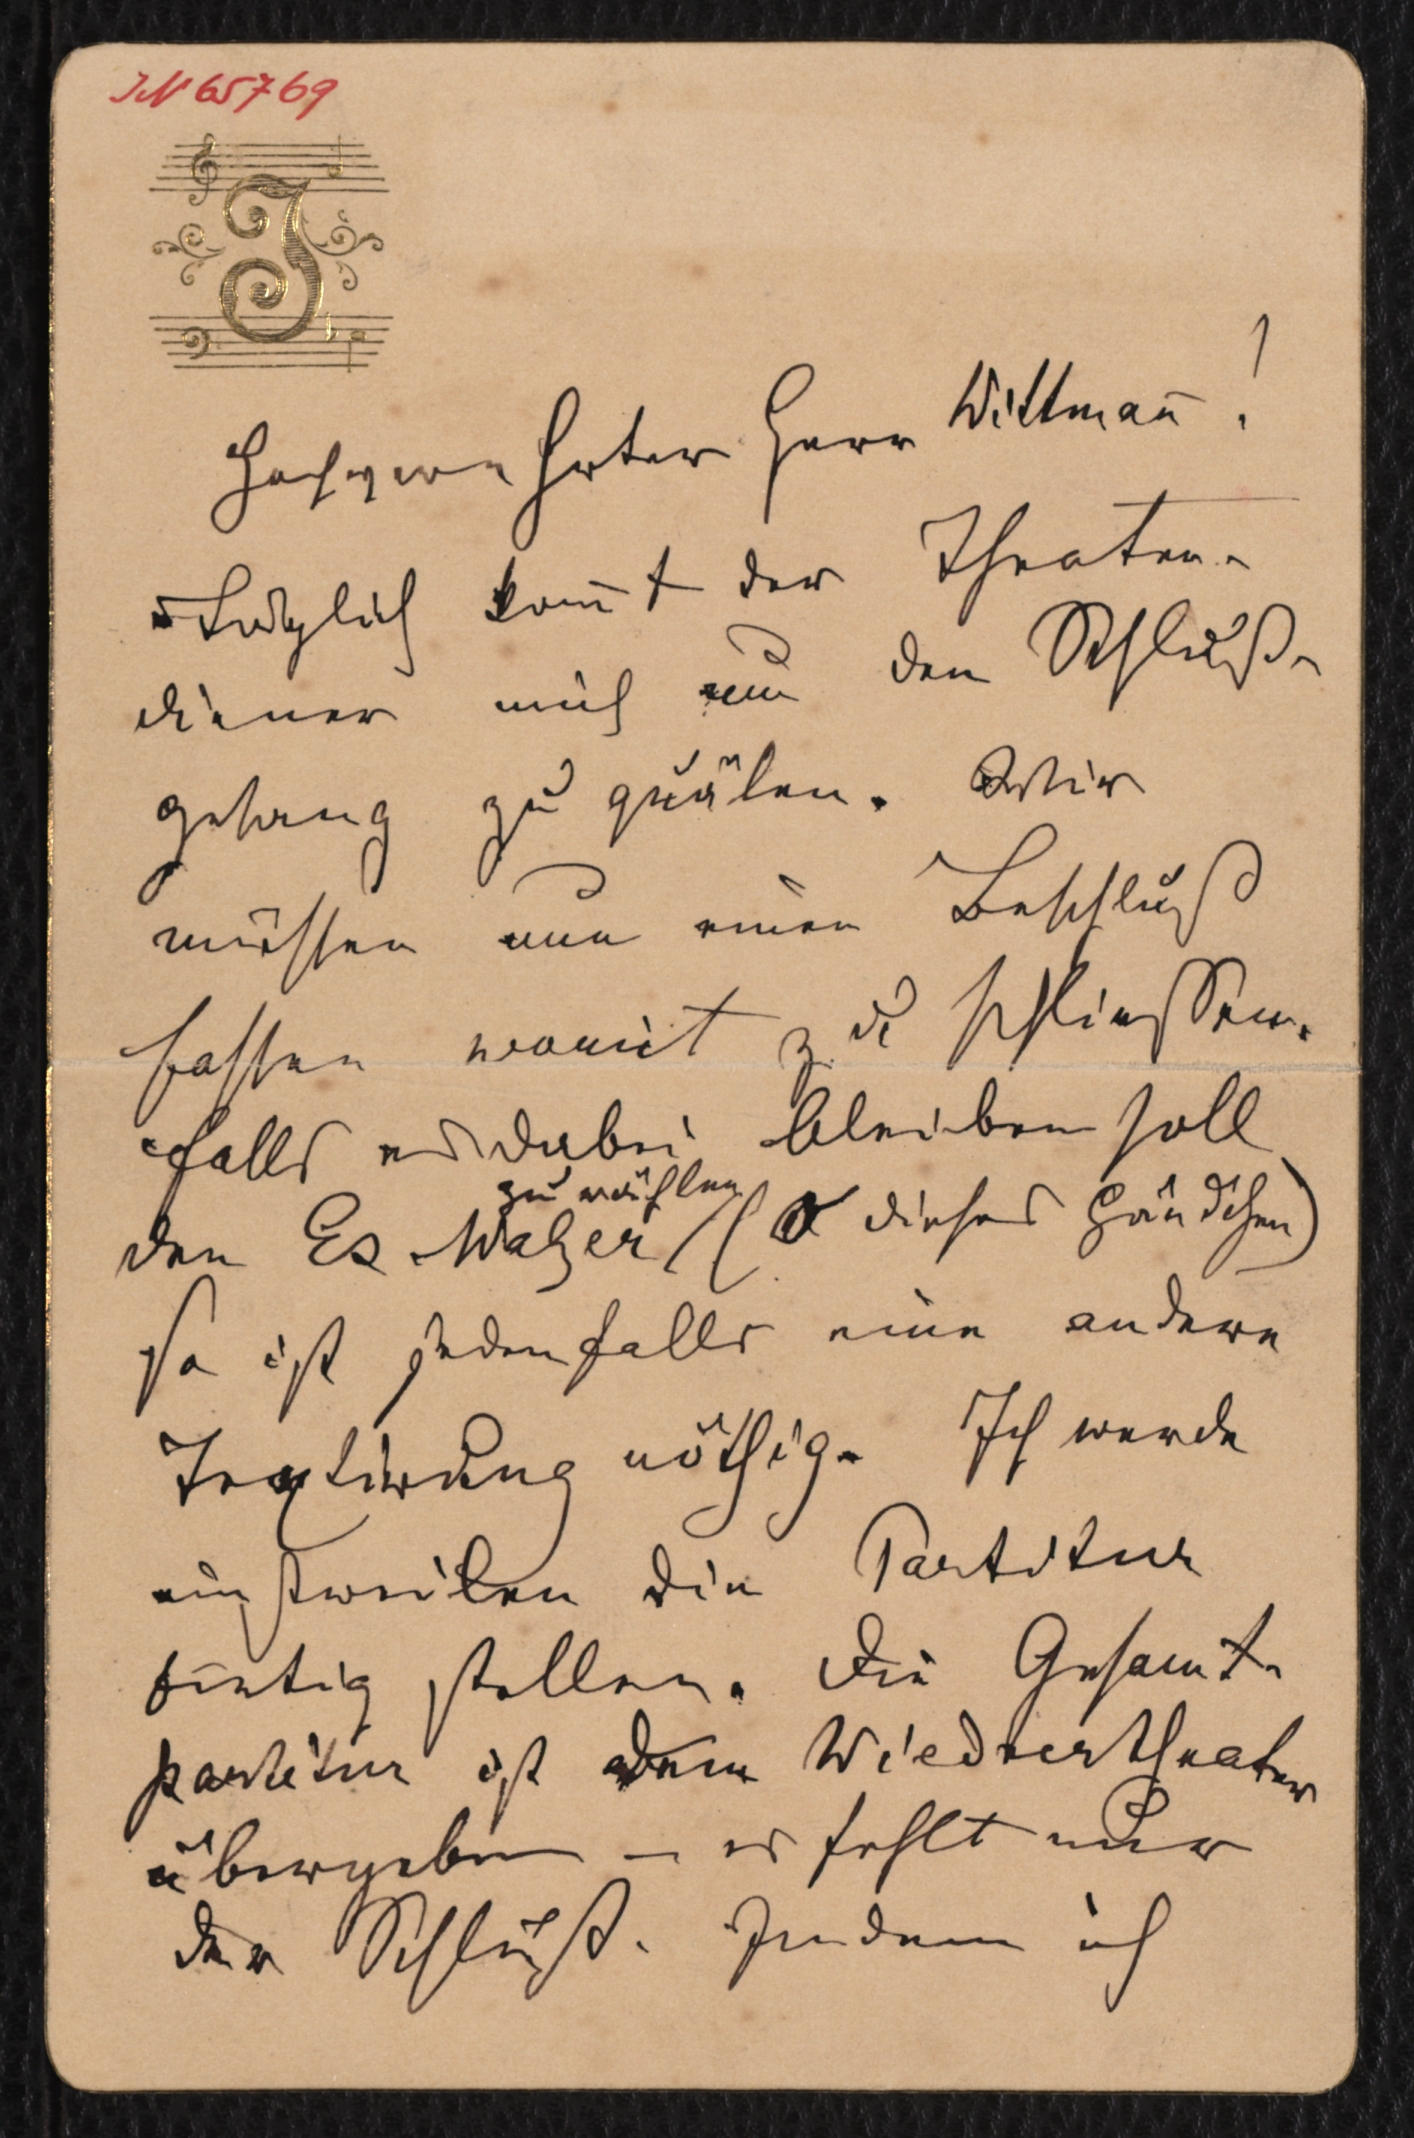 IN 65769
J
Hochverehrter Herr Wittman̄!
Täglich kom̄t der Theater-
diener mich um den Schluß-
gesang zu quälen. Wir
müssen nun einen Beschluß
fassen womit zu schliessen.
falls es dabei bleiben soll
zu wählen
den Es Walzer (O dieses Händchen)
so ist jedenfalls eine andere
Textirung nöthig. Ich werde
einstweilen die Partitur
fertig stellen. Die Gesamt-
partitur ist dem Wiednertheater
übergeben – es fehlt nur
der Schluß. Indem ich